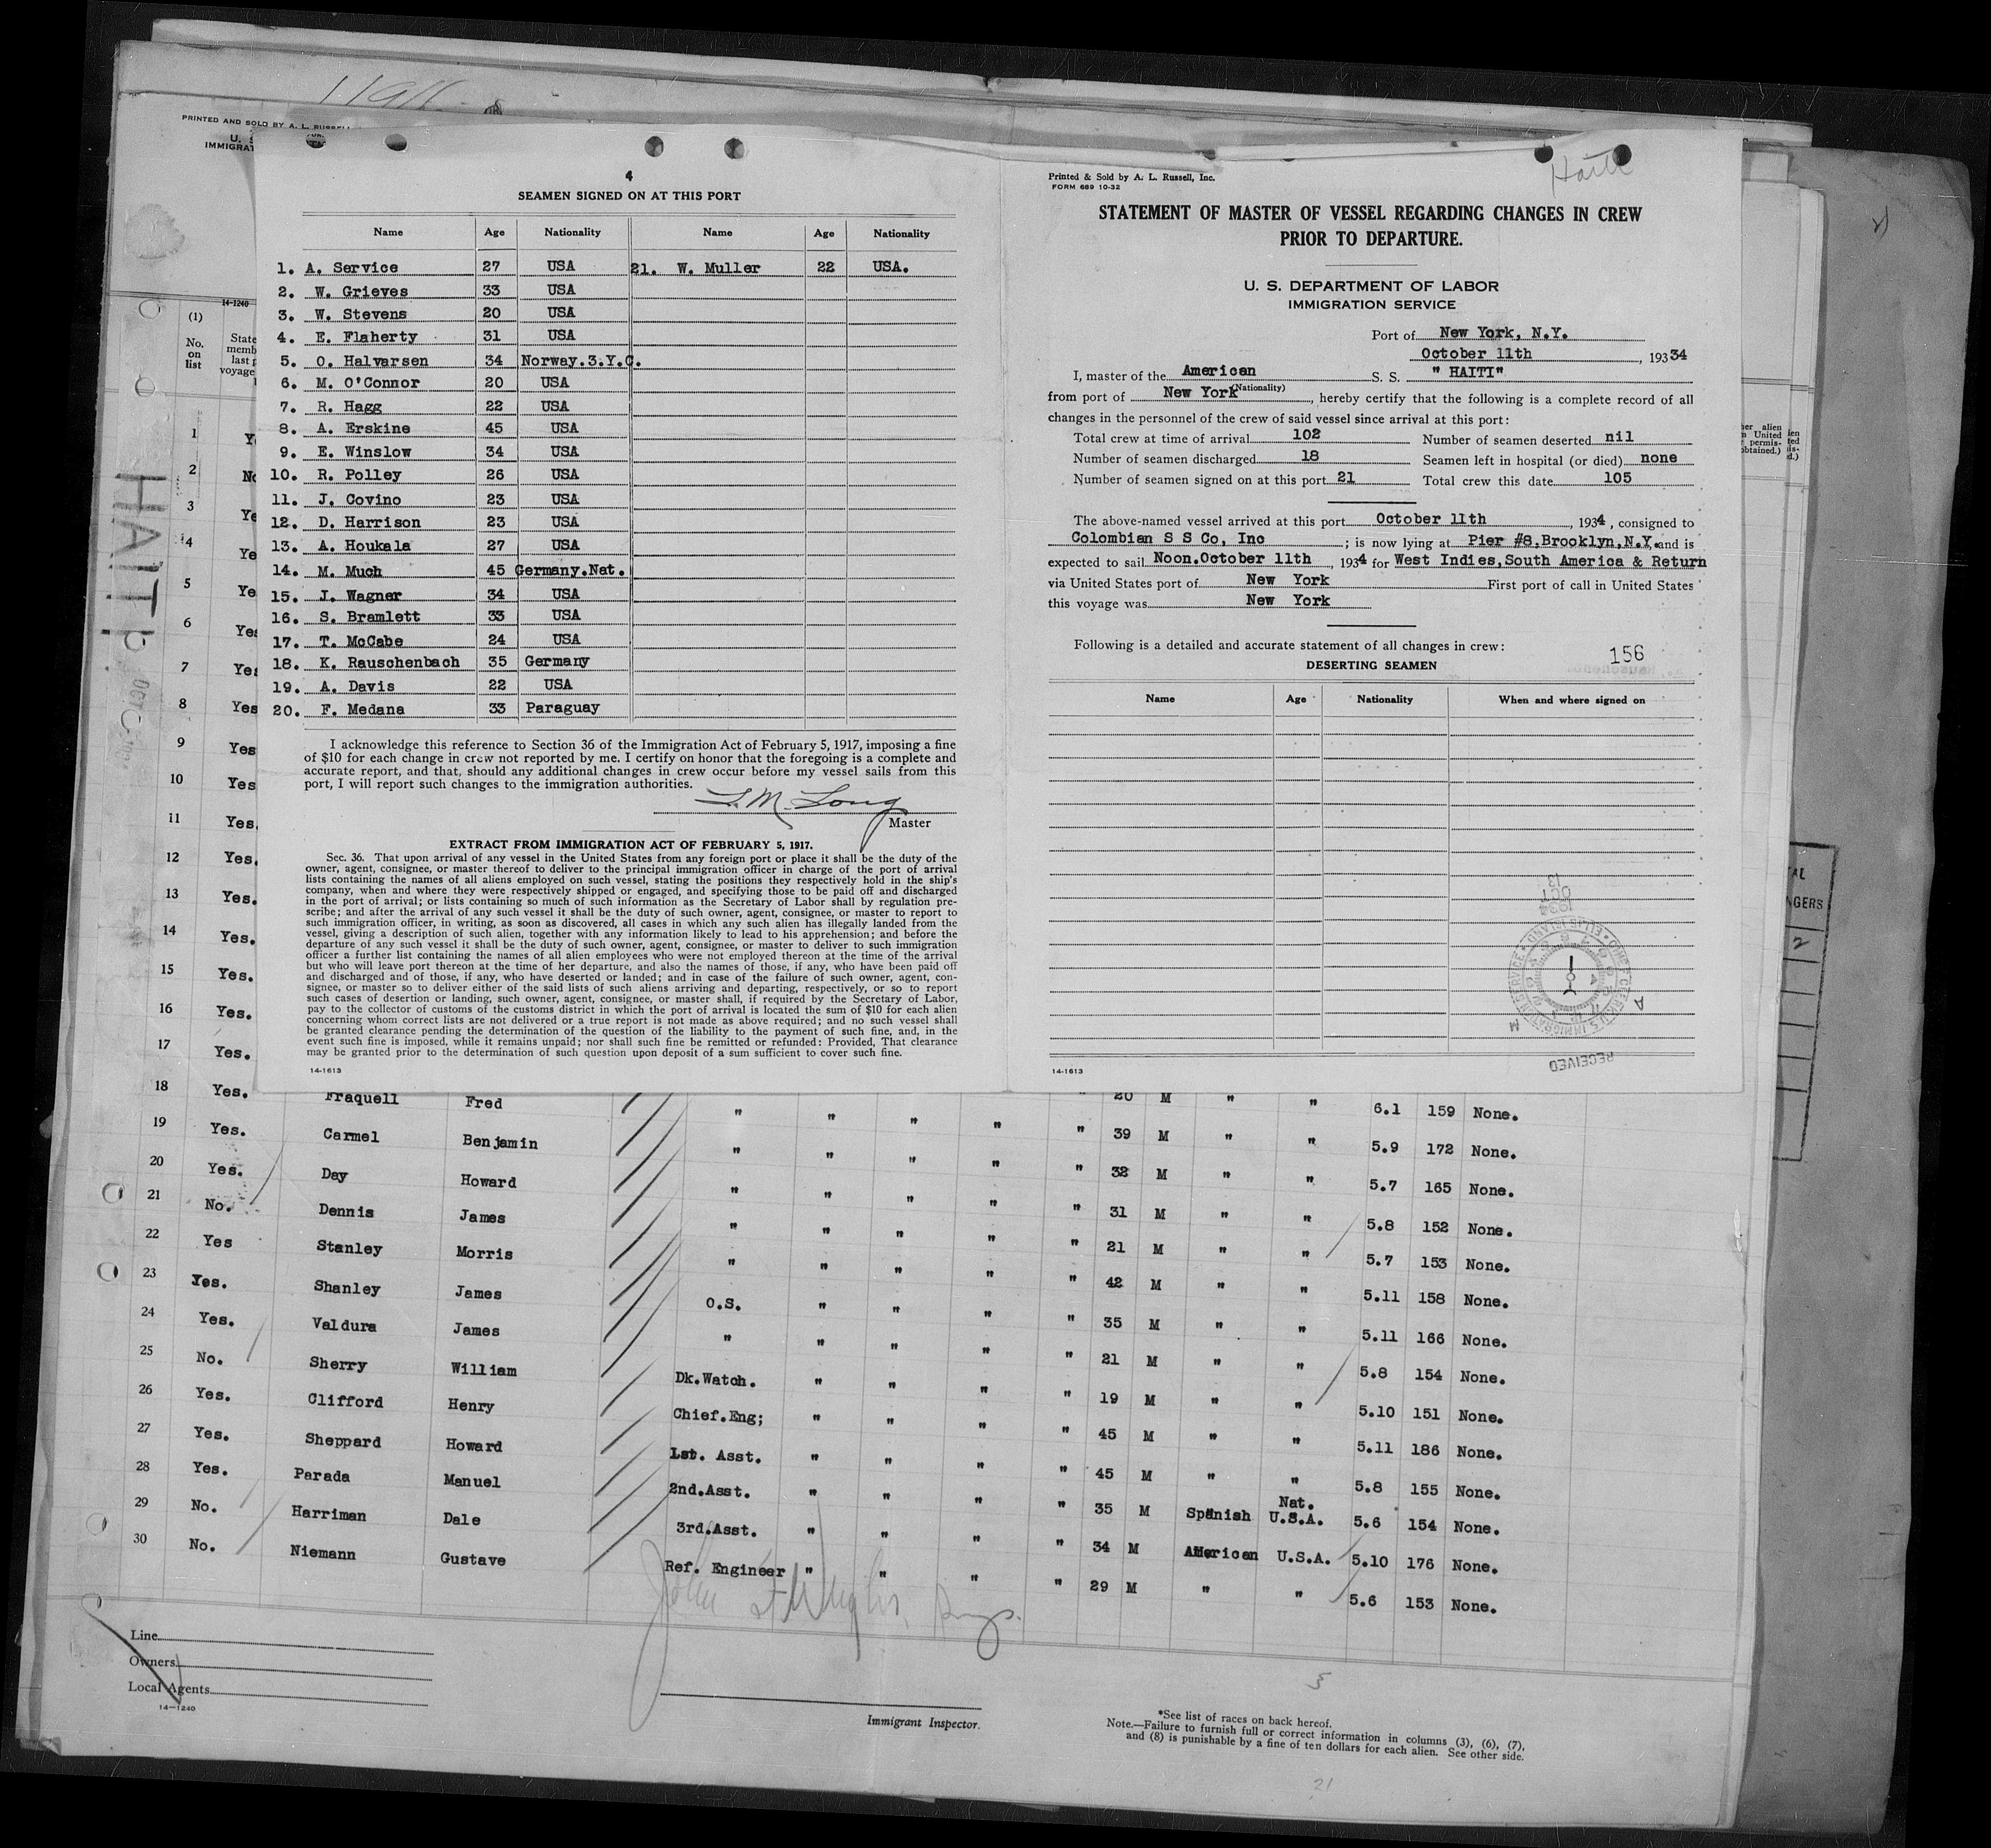 PRINTED AND SOLD BY A. L. RUSSELL
U. S
IMMIGRAT
14-1240
(1)
No.
on
list
State
memb
last
voyage
HAITI
4
SEAMEN SIGNED ON AT THIS PORT
Name Age Nationality Name Age Nationality
1. A. Service 27 USA 21. W. Muller 22 USA.
2. W. Grieves 33 USA
3. W. Stevens 20 USA
4. E. Flaherty 31 USA
5. O. Halvarsen 34 Norway.3.Y.C.
6. M. O'Connor 20 USA
7. R. Hagg 22 USA
8. A. Erskine 45 USA
9. E. Winslow 34 USA
10. R. Polley 26 USA
11. J. Covino 23 USA
12. D. Harrison 23 USA
13. A. Houkala 27 USA
14. M. Much 45 Germany.Nat.
15. J. Wagner 34 USA
16. S. Bramlett 33 USA
17. T. McCabe 24 USA
18. K. Rauschenbach 35 Germany
19. A. Davis 22 USA
20. F. Medana 33 Paraguay
I acknowledge this reference to Section 36 of the Immigration Act of February 5, 1917, imposing a fine
of $10 for each change in crew not reported by me. I certify on honor that the foregoing is a complete and
accurate report, and that, should any additional changes in crew occur before my vessel sails from this
port, I will report such changes to the immigration authorities.
L. M. Long
Master
EXTRACT FROM IMMIGRATION ACT OF FEBRUARY 5, 1917.
Sec. 36. That upon arrival of any vessel in the United States from any foreign port or place it shall be the duty of the
owner, agent, consignee, or master thereof to deliver to the principal immigration officer in charge of the port of arrival
lists containing the names of all aliens employed on such vessel, stating the positions they respectively hold in the ship's
company, when and where they were respectively shipped or engaged, and specifying those to be paid off and discharged
in the port of arrival; or lists containing so much of such information as the Secretary of Labor shall by regulation pre-
scribe; and after the arrival of any such vessel it shall be the duty of such owner, agent, consignee, or master to report to
such immigration officer, in writing, as soon as discovered, all cases in which any such alien has illegally landed from the
vessel, giving a description of such alien, together with any information likely to lead to his apprehension; and before the
departure of any such vessel it shall be the duty of such owner, agent, consignee, or master to deliver to such immigration
officer a further list containing the names of all alien employees who were not employed thereon at the time of the arrival
but who will leave port thereon at the time of her departure, and also the names of those, if any, who have been paid off
and discharged and of those, if any, who have deserted or landed; and in case of the failure of such owner, agent, con-
signee, or master so to deliver either of the said lists of such aliens arriving and departing, respectively, or so to report
such cases of desertion or landing, such owner, agent, consignee, or master shall, if required by the Secretary of Labor,
pay to the collector of customs of the customs district in which the port of arrival is located the sum of $10 for each alien
concerning whom correct lists are not delivered or a true report is not made as above required; and no such vessel shall
be granted clearance pending the determination of the question of the liability to the payment of such fine, and, in the
event such fine is imposed, while it remains unpaid; nor shall such fine be remitted or refunded: Provided, That clearance
may be granted prior to the determination of such question upon deposit of a sum sufficient to cover such fine.
14-1613
Haiti
Printed & Sold by A. L. Russell, Inc.
FORM 689 10-32
STATEMENT OF MASTER OF VESSEL REGARDING CHANGES IN CREW
PRIOR TO DEPARTURE.
U. S. DEPARTMENT OF LABOR
IMMIGRATION SERVICE
Port of New York, N.Y.
October 11th, 1934
I, master of the American S. S. "HAITI"
(Nationality)
from port of New York, hereby certify that the following is a complete record of all
changes in the personnel of the crew of said vessel since arrival at this port:
Total crew at time of arrival 102 Number of seamen deserted nil
Number of seamen discharged 18 Seamen left in hospital (or died) none
Number of seamen signed on at this port 21 Total crew this date 105
The above-named vessel arrived at this port October 11th, 1934, consigned to
Colombian S S Co, Inc; is now lying at Pier #8,Brooklyn,N.Y. and is
expected to sail Noon.October 11th, 1934 for West Indies,South America & Return
via United States port of New York First port of call in United States
this voyage was New York
Following is a detailed and accurate statement of all changes in crew:
156
DESERTING SEAMEN
Name Age Nationality When and where signed on
RECEIVED
14-1613
1 Y
2 No
3 Ye
4 Ye
5 Ye
6 Yes
7 Yes
8 Yes
9 Yes
10 Yes
11 Yes.
12 Yes.
13 Yes.
14 Yes.
15 Yes.
16 Yes.
17 Yes.
18 Yes. Fraquell Fred " " " " " 20 M " " 6.1 159 None.
19 Yes. Carmel Benjamin " " " " " 39 M " " 5.9 172 None.
20 Yes. Day Howard " " " " " 32 M " " 5.7 165 None.
21 No. Dennis James " " " " " 31 M " " 5.8 152 None.
22 Yes Stanley Morris " " " " " 21 M " " 5.7 153 None.
23 Yes. Shanley James O.S. " " " " 42 M " " 5.11 158 None.
24 Yes. Valdura James " " " " " 35 M " " 5.11 166 None.
25 No. Sherry William Dk.Watch. " " " " 21 M " " 5.8 154 None.
26 Yes. Clifford Henry Chief.Eng; " " " " 19 M " " 5.10 151 None.
27 Yes. Sheppard Howard 1st. Asst. " " " " 45 M " " 5.11 186 None.
28 Yes. Parada Manuel 2nd.Asst. " " " " 45 M " " 5.8 155 None.
29 No. Harriman Dale 3rd.Asst. " " " " 35 M Spanish Nat. U.S.A. 5.6 154 None.
30 No. Niemann Gustave Ref. Engineer " " " " 34 M American U.S.A. 5.10 176 None.
" 29 M " " 5.6 153 None.
Line
Owners
Local Agents
14-1240
Immigrant Inspector.
*See list of races on back hereof.
Note.—Failure to furnish full or correct information in columns (3), (6), (7),
and (8) is punishable by a fine of ten dollars for each alien. See other side.
21